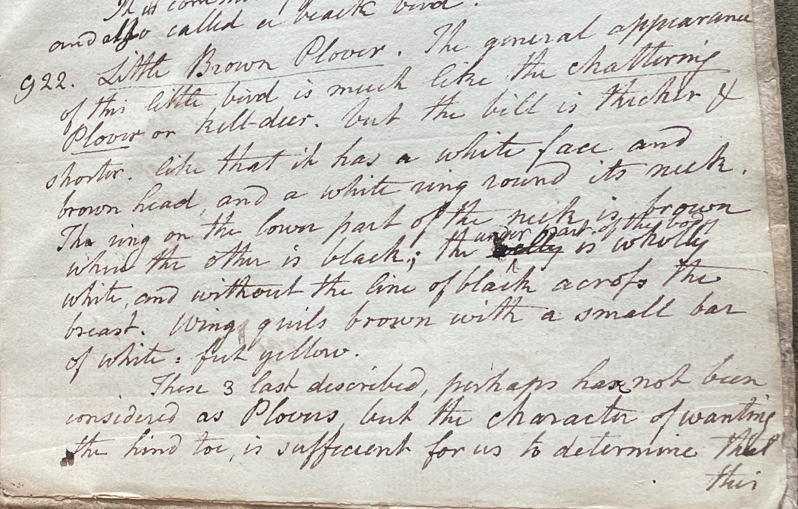 It is com
and also called a black bird.
922. Little Brown Plover. The general appearance
of this little bird is much like the chattering
Plover or kill-deer. but the bill is thicker &
shorter. like that it has a white face and
brown head, and a white ring round its neck.
The ring on the lower part of the neck is brown
when the other is black; the under part of the body is wholly
white, and without the line of black across the
breast. Wing quils brown with a small bar
of white: feet yellow.
These 3 last described, perhaps have not been
considered as Plovers but the character of wanting
the hind toe, is sufficient for us to determine that
this